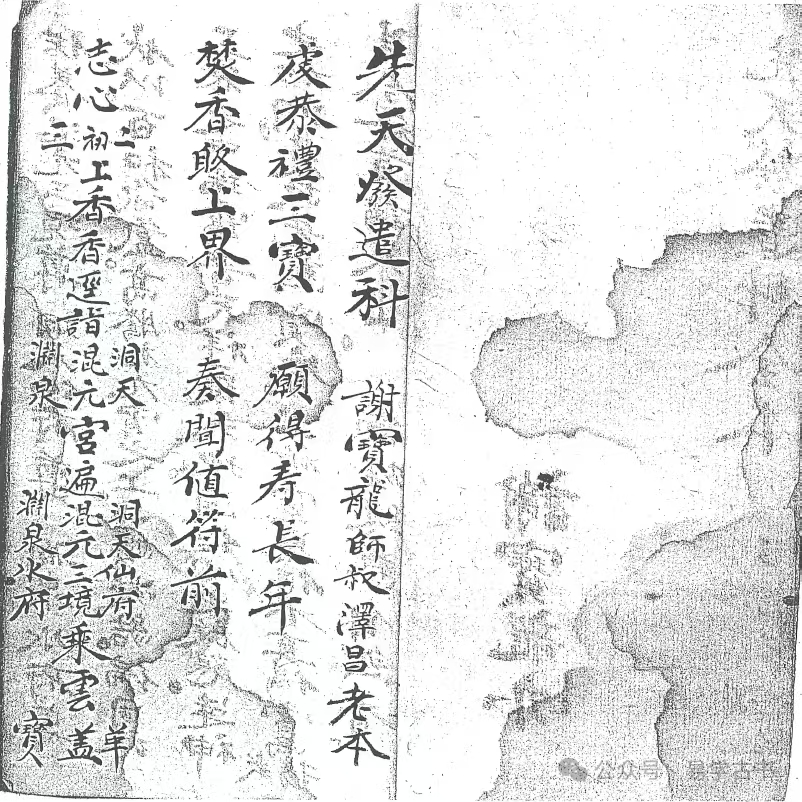 先天發遣科　謝寶龍師叔澤昌老本
虔恭禮三寶　願得壽長年
焚香啟上界　奏聞值符前
洞天　洞天仙府　羊
志心初上香香逕詣混元宮遍混元三境乘雲盖
二
三
淵泉　淵泉水府　寶
公众号 · 易学古书